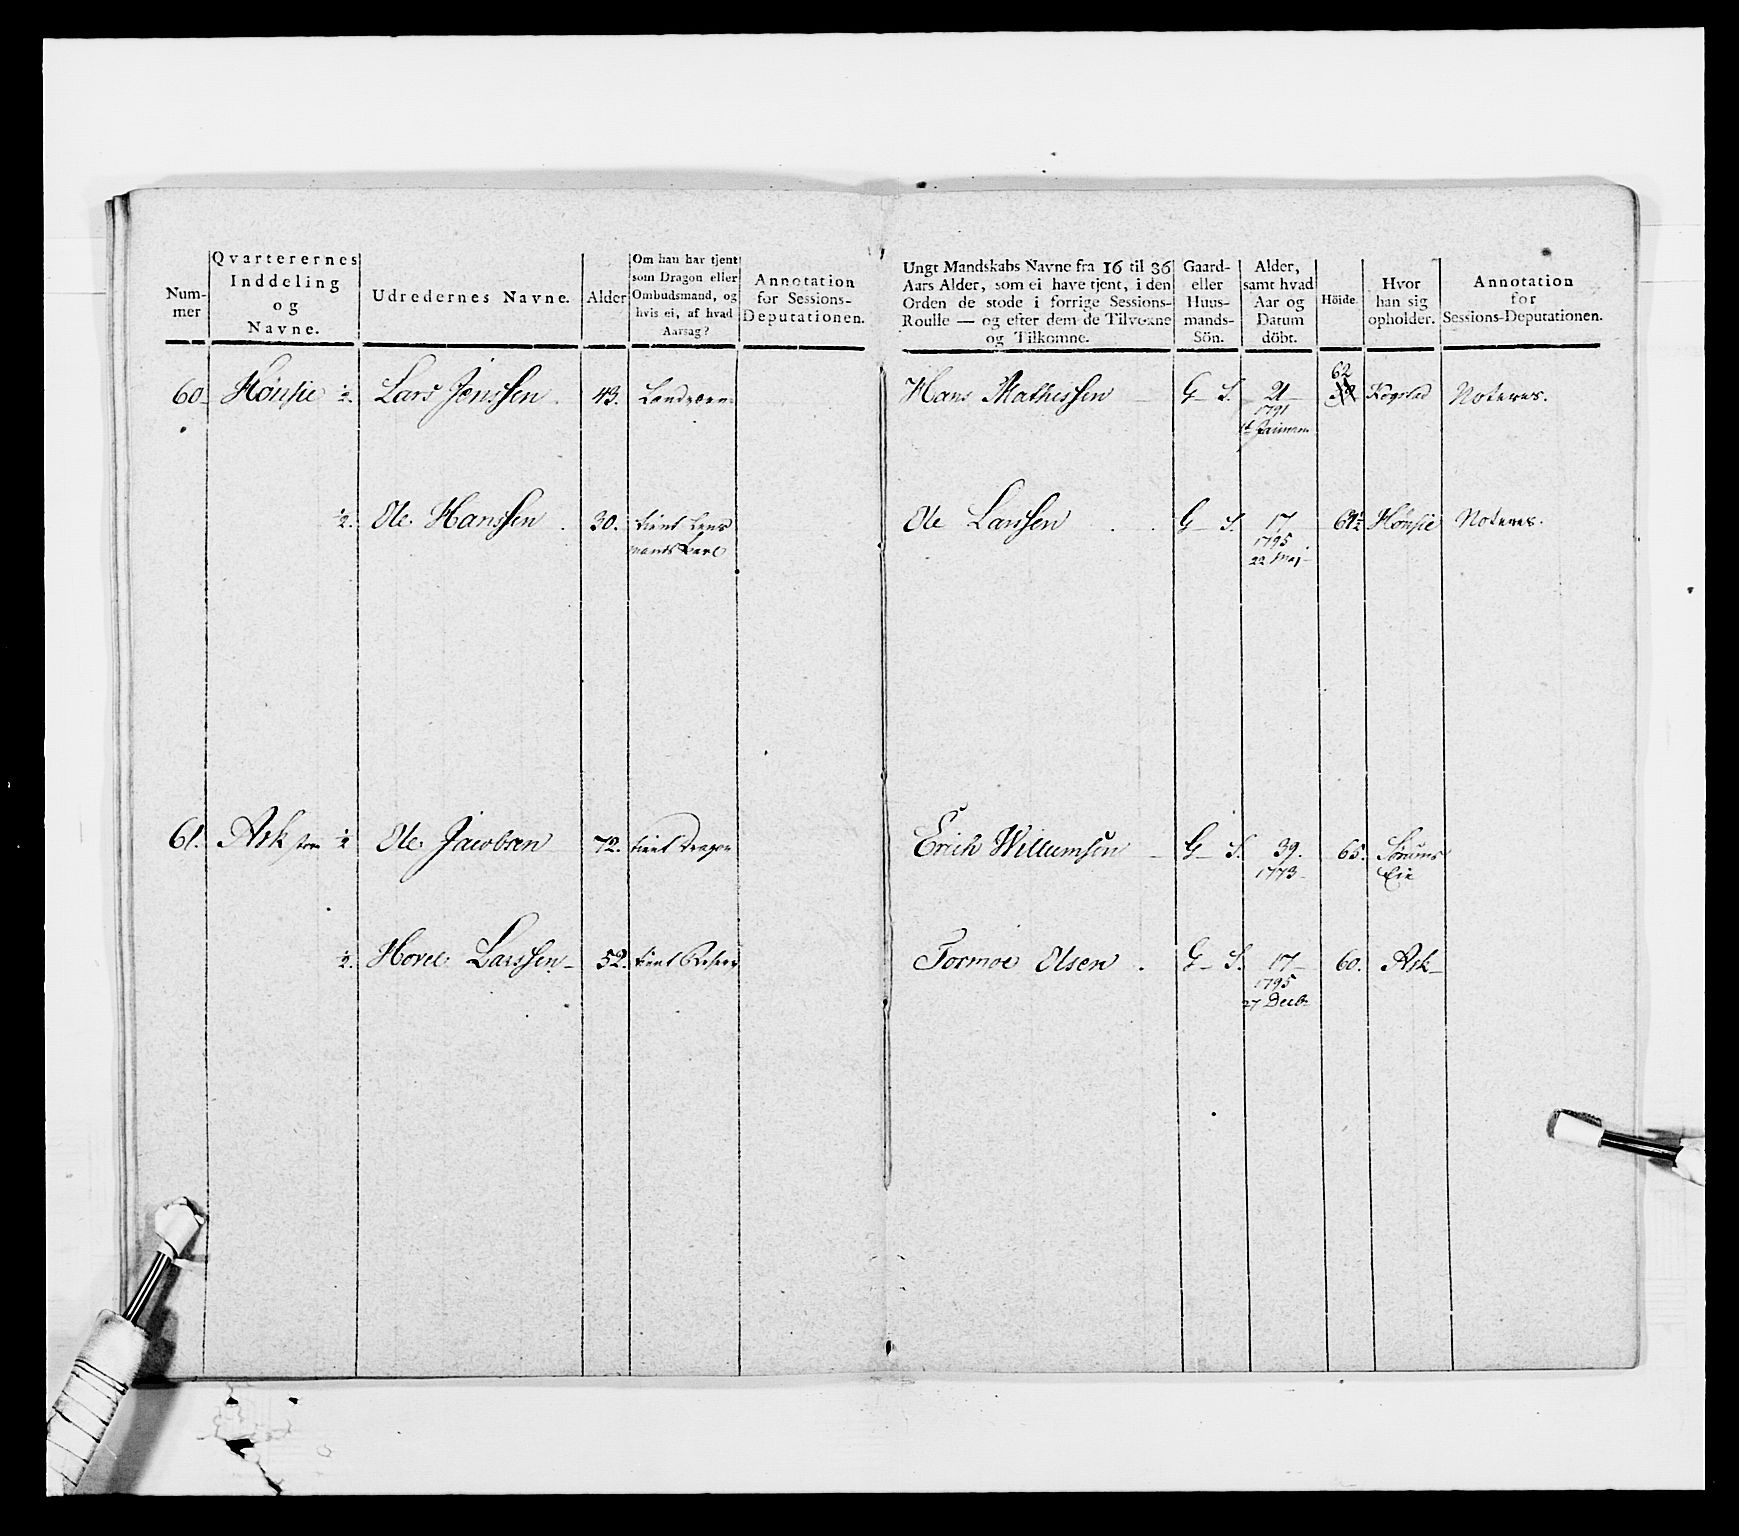 Num-
mer
Qvarterernes
Inddeling
og
Navne.
Udredernes Navne.
Alder
Om han har tjent
som Dragon eller
Ombudsmand, og
hvis ei, af hvad
Aarsag?
Annotation
for Sessions-
Deputationen.
Ungt Mandskabs Navne fra 16 til 36
Aars Alder, som ei have tjent, i den
Orden de stode i forrige Sessions-
Roulle — og efter dem de Tilvoxne
og Tilkomne.
Gaard-
eller
Huus-
mands-
Sön.
Alder,
samt hvad
Aar og
Datum
döbt.
Höide.
Hvor
han sig
opholder.
Annotation
for
Sessions-Deputationen.
60. Hönsie ½. Lars Jenssen. 43. Landværn
Hans Mathessen G S. 21 62 Noteres.
1791
½. Ole Hanssen. 30. tient Lens
mands Karl
Ole Larssen G S. 17 61½ Hönsie Noteres.
1795
22 Maj
61. Ask ½ Ole Jacobsen 72. tient Dragon
Erich Willumsen G S. 39. 65. Sörums
1773 Eie
½. Hovel Larssen 52. tient
Tormoe Olsen. G S. 17 60. Ask
1795
27 Decb.